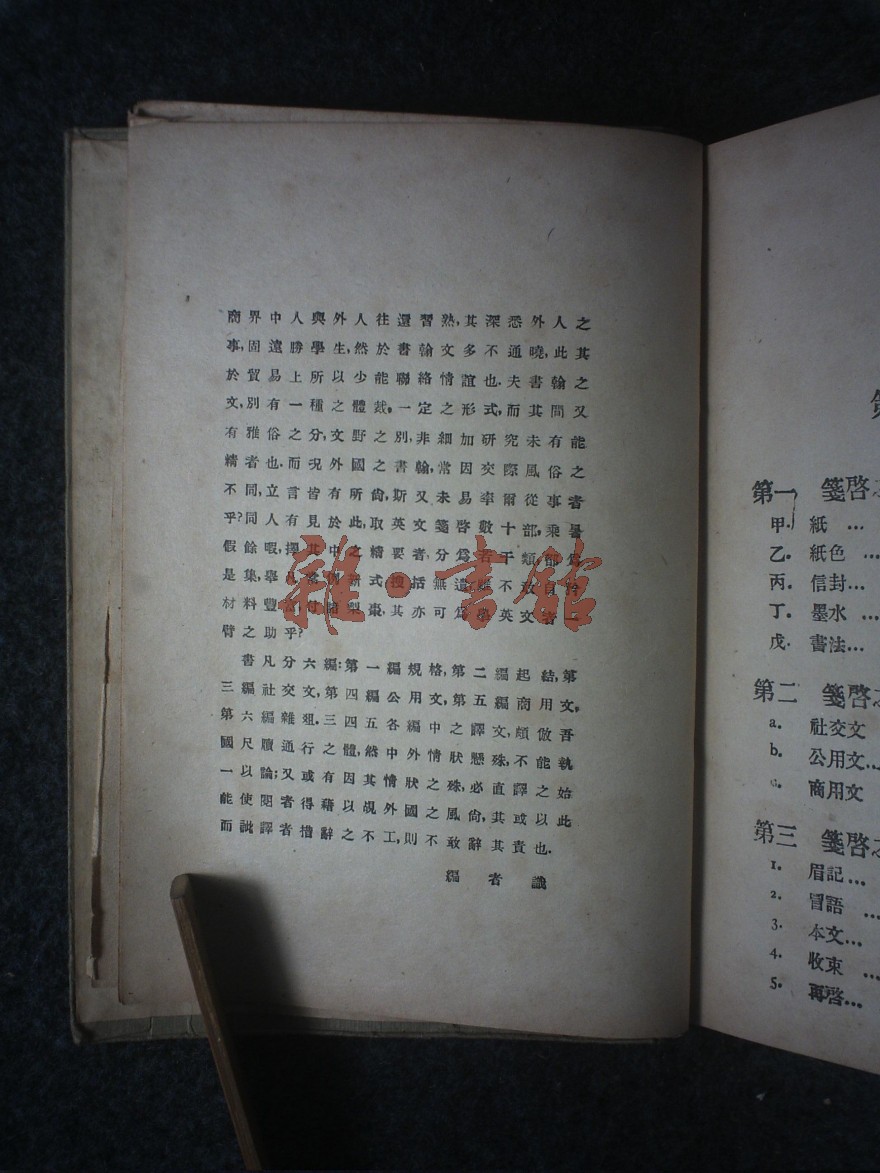 商界中人與外人往還習熟,其深悉外人之
事,固遠勝學生,然於書翰文多不通曉,此其
於貿易上所以少能聯絡情誼也.夫書翰之
文,別有一種之體裁,一定之形式,而其間又
有雅俗之分,文野之別,非細加研究未有能
精者也.而況外國之書翰,常因交際風俗之
不同,立言皆有所尙,斯又未易率爾從事者
乎?同人有見於此,取英文箋啓數十部,乘暑
假餘暇,擇其中之精要者,分爲若干類,
是集,舉凡 式,搜括無遺,雖不敢自
材料豐富,付諸梨棗,其亦可爲學英文者一
臂之助乎?
書凡分六編:第一編規格,第二編起結,第
三編社交文,第四編公用文,第五編商用文,
第六編雜俎.三四五各編中之譯文,頗倣吾
國尺牘通行之體,然中外情狀懸殊,不能執
一以論;又或有因其情狀之殊,必直譯之始
能使閱者得藉以覘外國之風尙,其或以此
而訿譯者措辭之不工,則不敢辭其責也.
編者識
雜·書館
第一 箋啓
甲. 紙 ...
乙. 紙色 ...
丙. 信封 ...
丁. 墨水 ...
戊. 書法...
第二 箋啓
a. 社交文
b. 公用文...
商用文
第三 箋啓
1. 眉記...
2. 冒語 ...
3. 本文...
4. 收束 ...
5. 再啓...